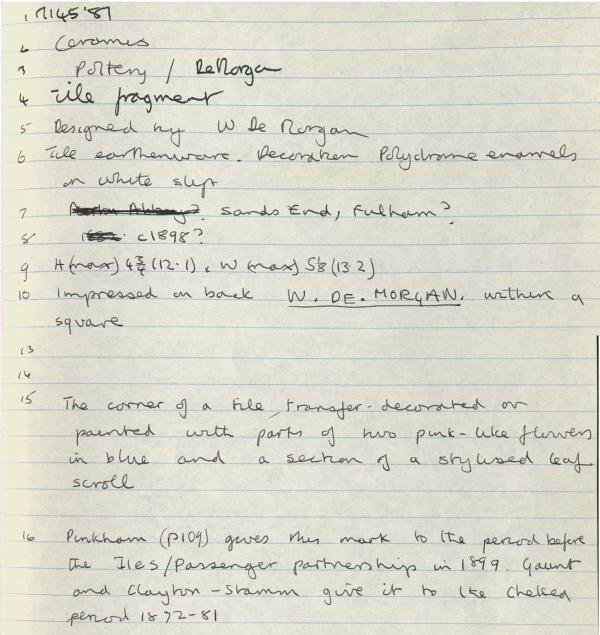 1 7145'87
2 Ceramics
3 Pottery / DeMorgan
4 Tile fragment
5 Designed by W De Morgan
6 Tile earthenware. Decoration Polychrome enamels
on white slip
7 Sands End, Fulham?
8 c1898?
9 H (max) 4 3/4 (12·1), W (max) 5 1/8 (13·2)
10 Impressed on back W. DE. MORGAN. within a
square
13
14
15 The corner of a tile, transfer-decorated or
painted with parts of two pink-like flowers
in blue and a section of a stylised leaf
scroll
16 Pinkham (p109) gives this mark to the period before
the Iles/Passenger partnership in 1899. Gaunt
and Clayton-Stamm give it to the Chelsea
period 1872-81